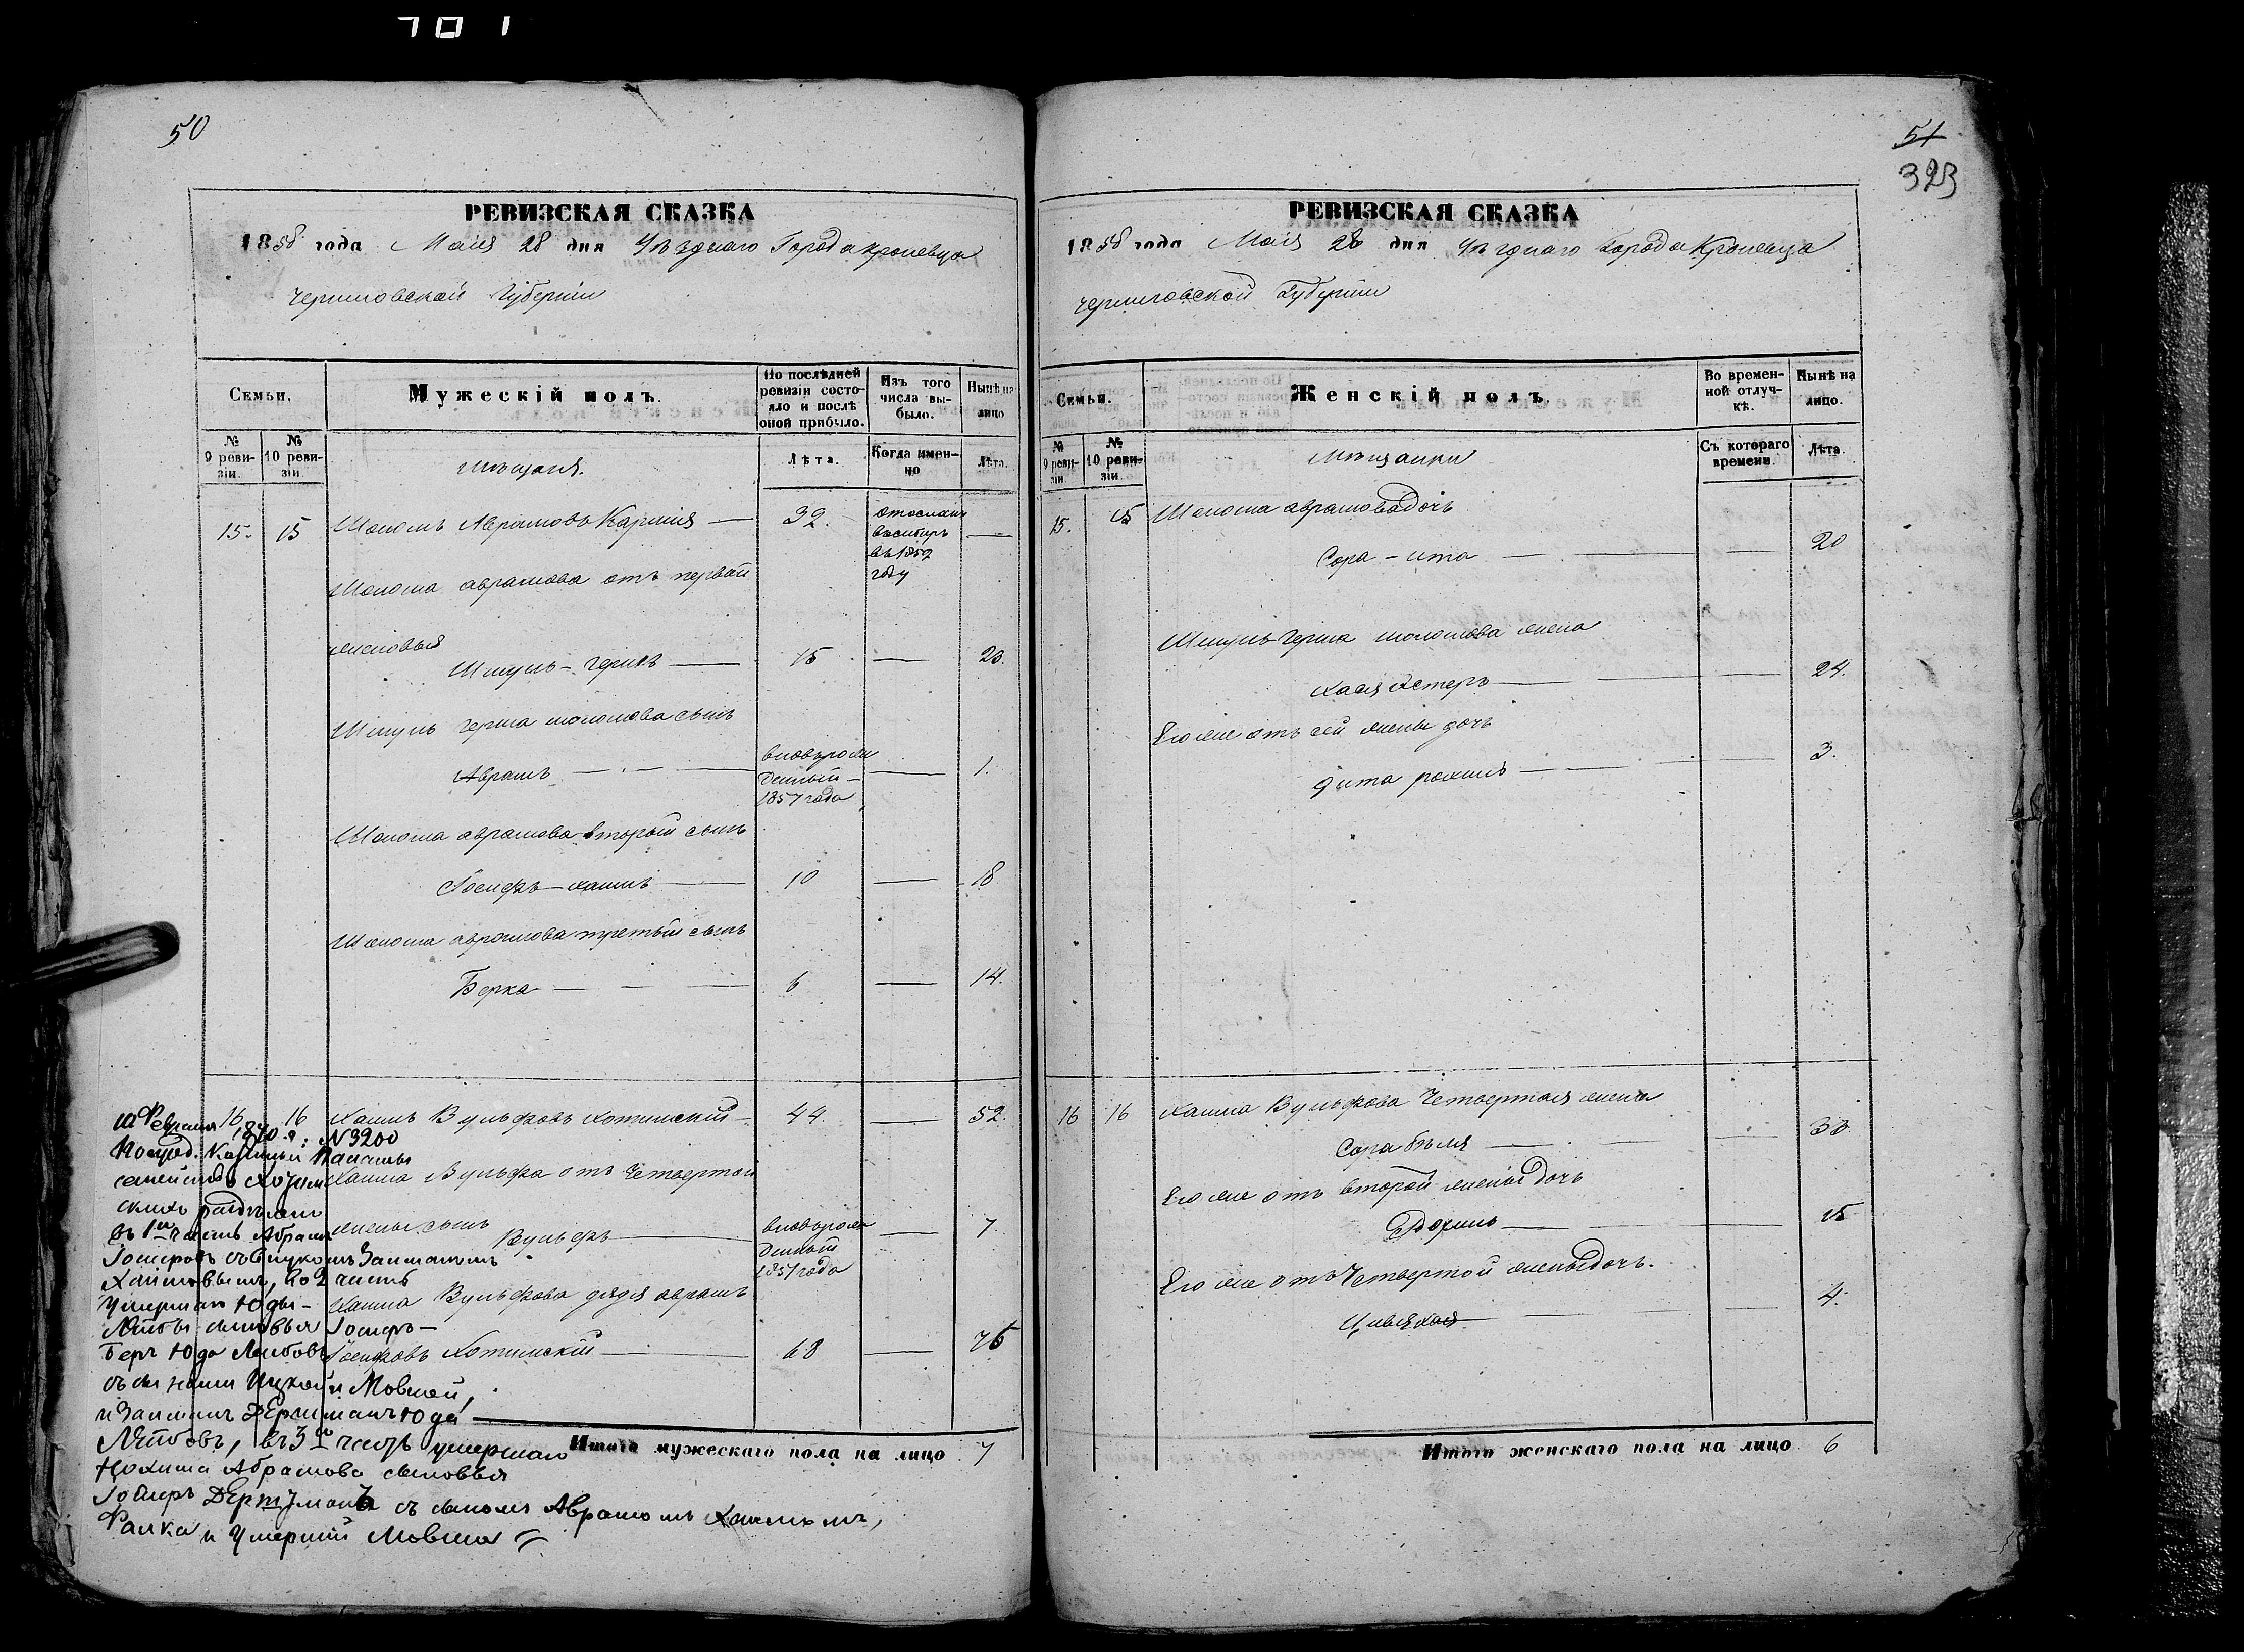 50
РЕВИЗСКАЯ СКАЗКА
1858 года Маія 28 дня Уѣзднаго Города Кролевца
Черниговской Губерніи
Семьи.
Мужескій полъ.
По послѣдней ревизіи состояло и послѣ оной прибыло.
Изъ того числа выбыло.
Нынѣ на лицо
№ 9 ревизіи.
№ 10 ревизіи
Мѣщаня.
Лѣта.
Когда именно
Лѣта.
15. 15 Шоломъ Аврамовъ 32. отосланъ
въ 1852
году
Шолома аврамова отъ первой
Шмуль-Гершъ 15 23.
Шмуль Герша шоломова сынъ
Аврамъ вновърож
денный
1857 года 1.
Шолома аврамова второй сынъ
Іосифъ-хаимъ 10 18
Шолома аврамова третій сынъ
Берка 6 14.
16 16 Хаимъ Вульфовъ Хотимскій 44. 52.
Хаима Вульфа отъ Четвертой
жены сынъ
Вульфъ вновърож
денный
1851 года 7.
Хаима Вульфова дядя аврамъ
Іосифовъ Хотимскій 68 76
Итого мужескаго пола на лицо 7
Февраля 1870 г: N3200
семейство
въ 1й часть Абрамъ
Іосифовъ
Хаимовымъ, во 2 часть
умершаго Юды-
Лейбы сыновья Іосифъ-
Беръ Юда Лейбовъ
съ сынами Ицкой и Мовшей,
и Залманъ Юда
Лейбовъ, въ 3ю часть умершаго
Абрамова сыновья
Іосифъ съ сыномъ Аврамомъ Хаимомъ,
Фалка и умершій Мовша
51
323
РЕВИЗСКАЯ СКАЗКА
1858 года Маія 28 дня Уѣзднаго Города Кролевца
Черниговской Губерніи
Семьи.
Женскій полъ.
Во временной отлучкѣ.
Нынѣ на лицо.
№ 9 ревизіи.
№ 10 ревизіи.
Мѣщанки
Съ котораго времени.
Лѣта.
15. 15 Шолома аврамова дочь
Сора-ита 20
Шмуль Герша шоломова жена
Хася Эстеръ 24.
Его же отъ сей жены дочь
3.
16 16 Хаима Вульфова Четвертая жена
Сора 30
Его же отъ второй жены дочь
15
Его же отъ Четвертой жены дочь.
4.
Итого женскаго пола на лицо 6